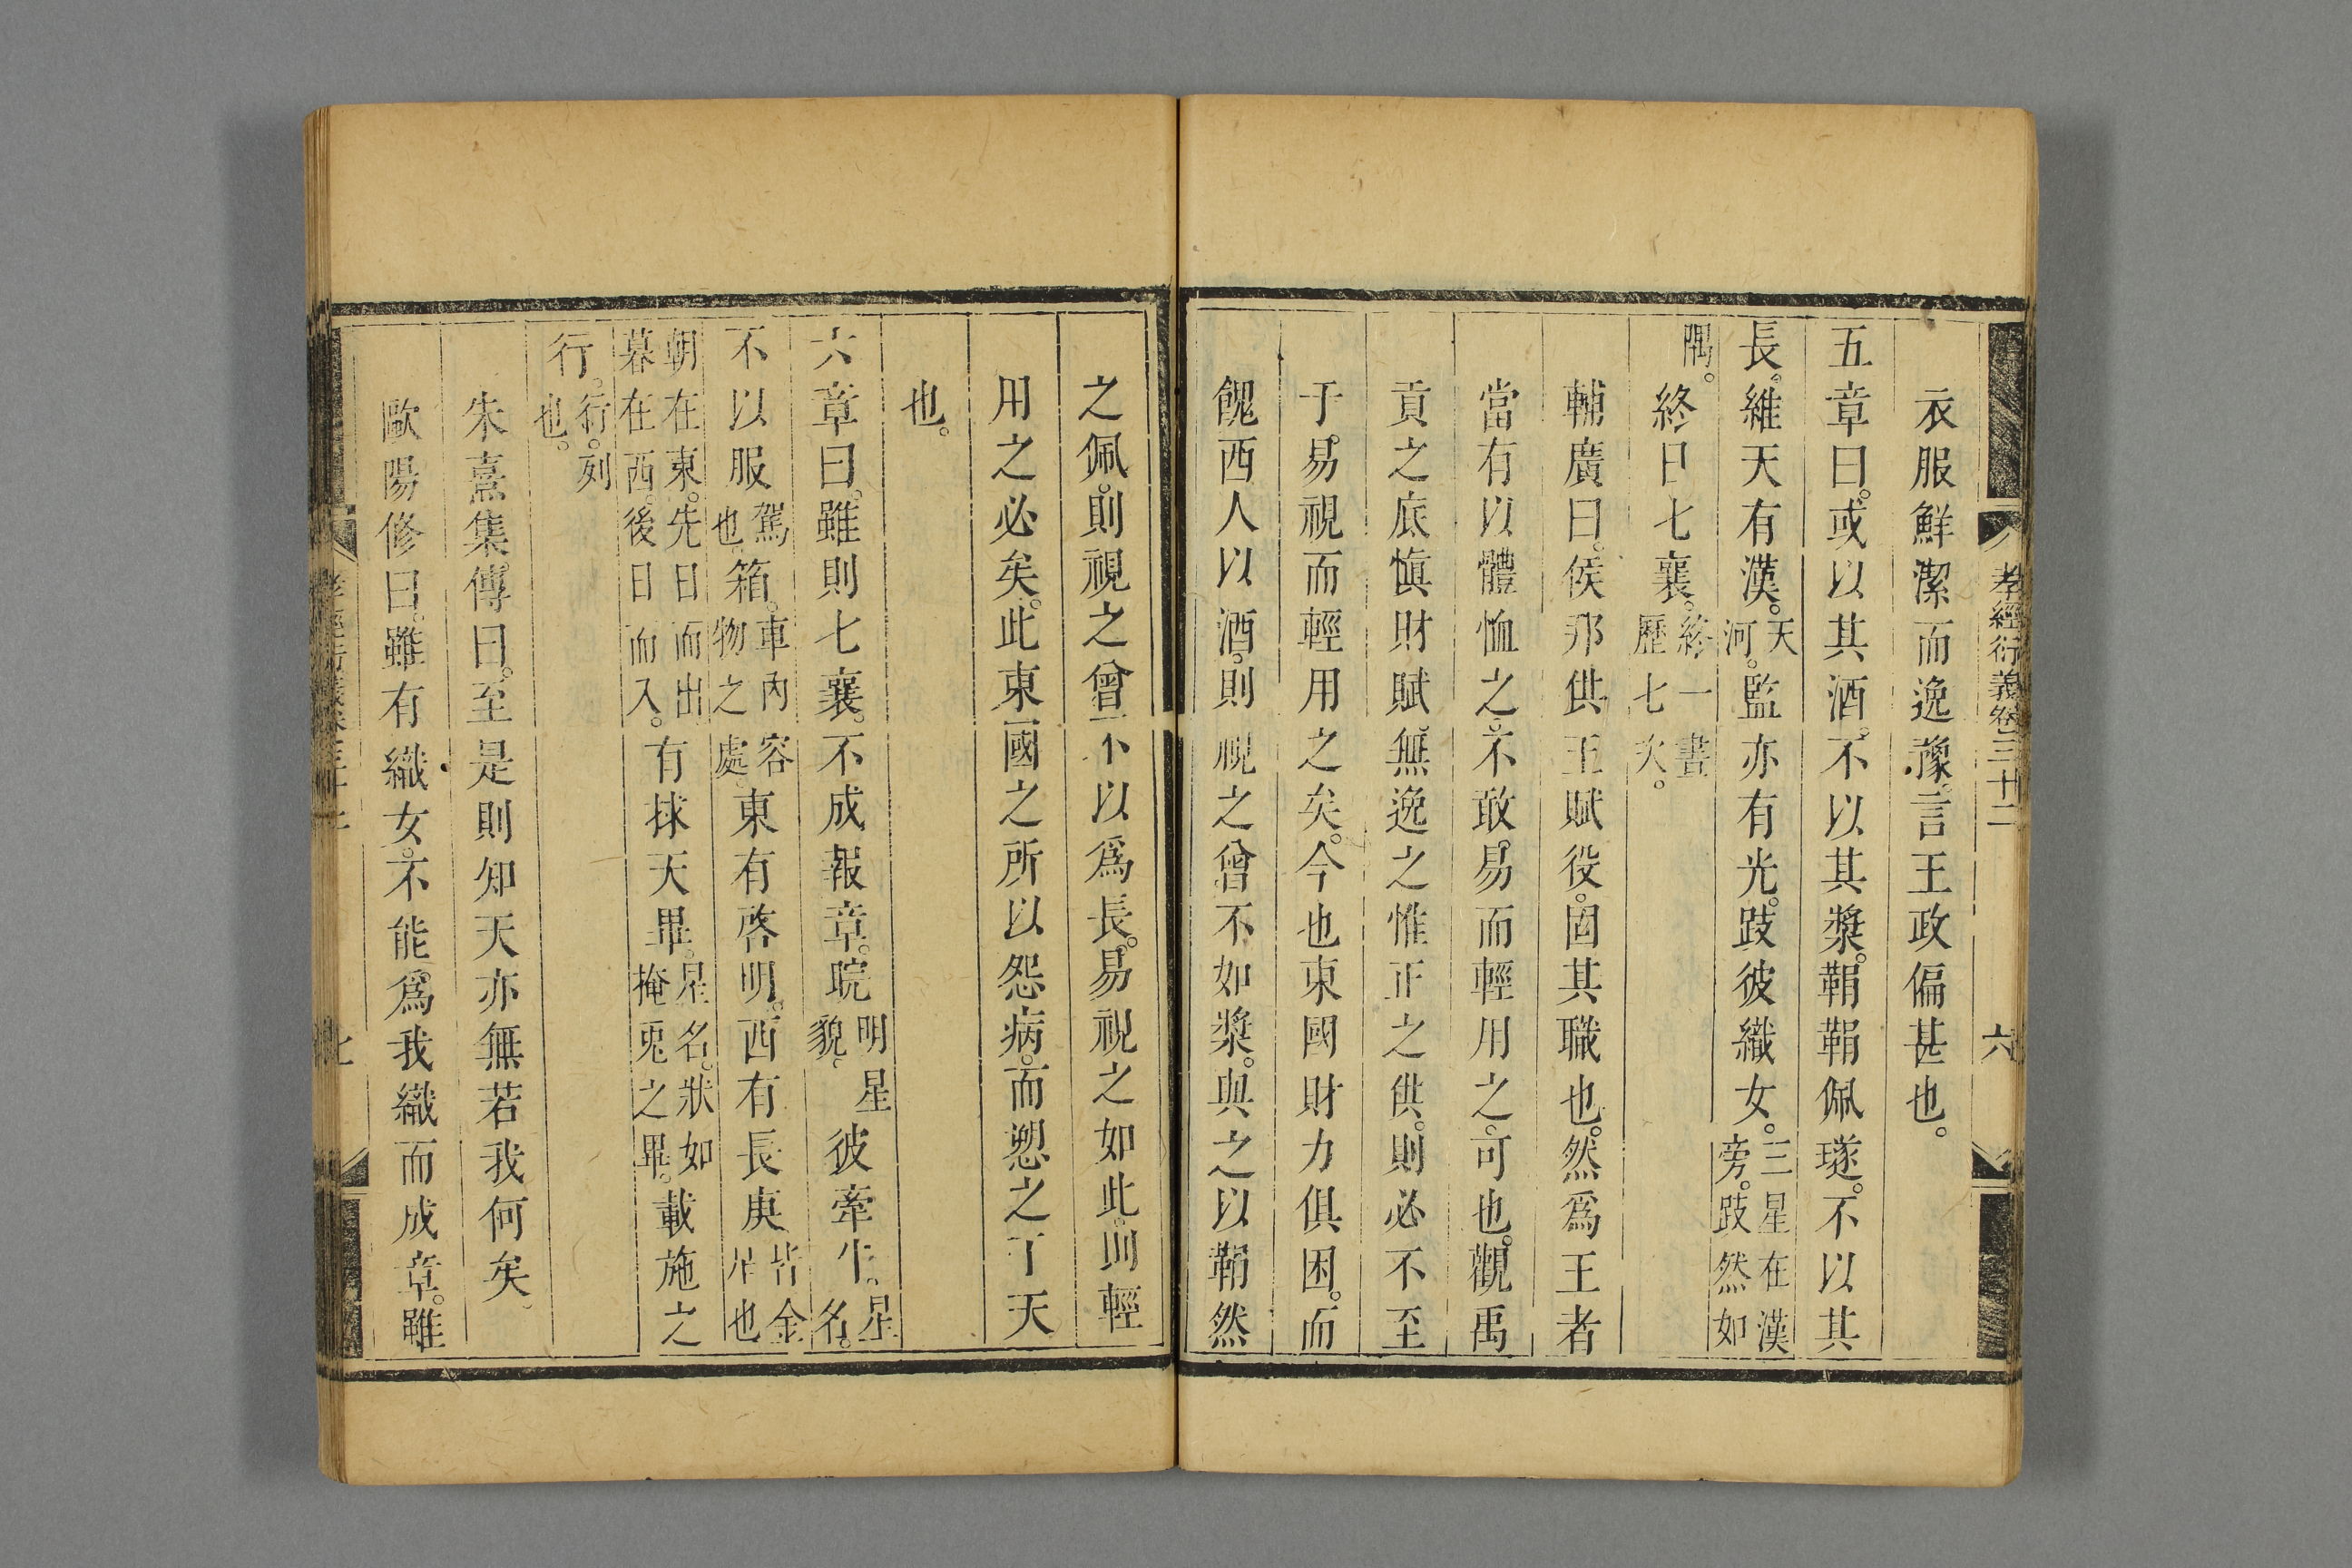 孝經衍義卷三十二
六
衣服鮮潔而逸豫。言王政偏甚也。
五章曰。或以其酒。不以其漿。鞙鞙佩璲。不以其
長。維天有漢。天河。監亦有光。跂彼織女。三星在漢旁。跂然如
隅。終日七襄。終一晝歷七次。
輔廣曰。侯邦供王賦役。固其職也。然爲王者
當有以體恤之。不敢易而輕用之。可也。觀禹
貢之底愼財賦。無逸之惟正之供。則必不至
于易視而輕用之矣。今也東國財力俱困。而
餽西人以酒。則視之曾不如漿。與之以鞙然
之佩。則視之曾不以爲長。易視之如此。則輕
用之必矣。此東國之所以怨病。而愬之于天
也。
六章曰。雖則七襄。不成報章。睆明星貌。彼牽牛。星名。
不以服駕也。箱。車內容物之處。東有啓明。西有長庚皆金星也
朝在東。先日而出暮在西。後日而入。有捄天畢。星名。狀如掩兎之畢。載施之
行。行。列也。
朱熹集傳曰。至是則知天亦無若我何矣。
歐陽修曰。雖有織女。不能爲我織而成章。雖